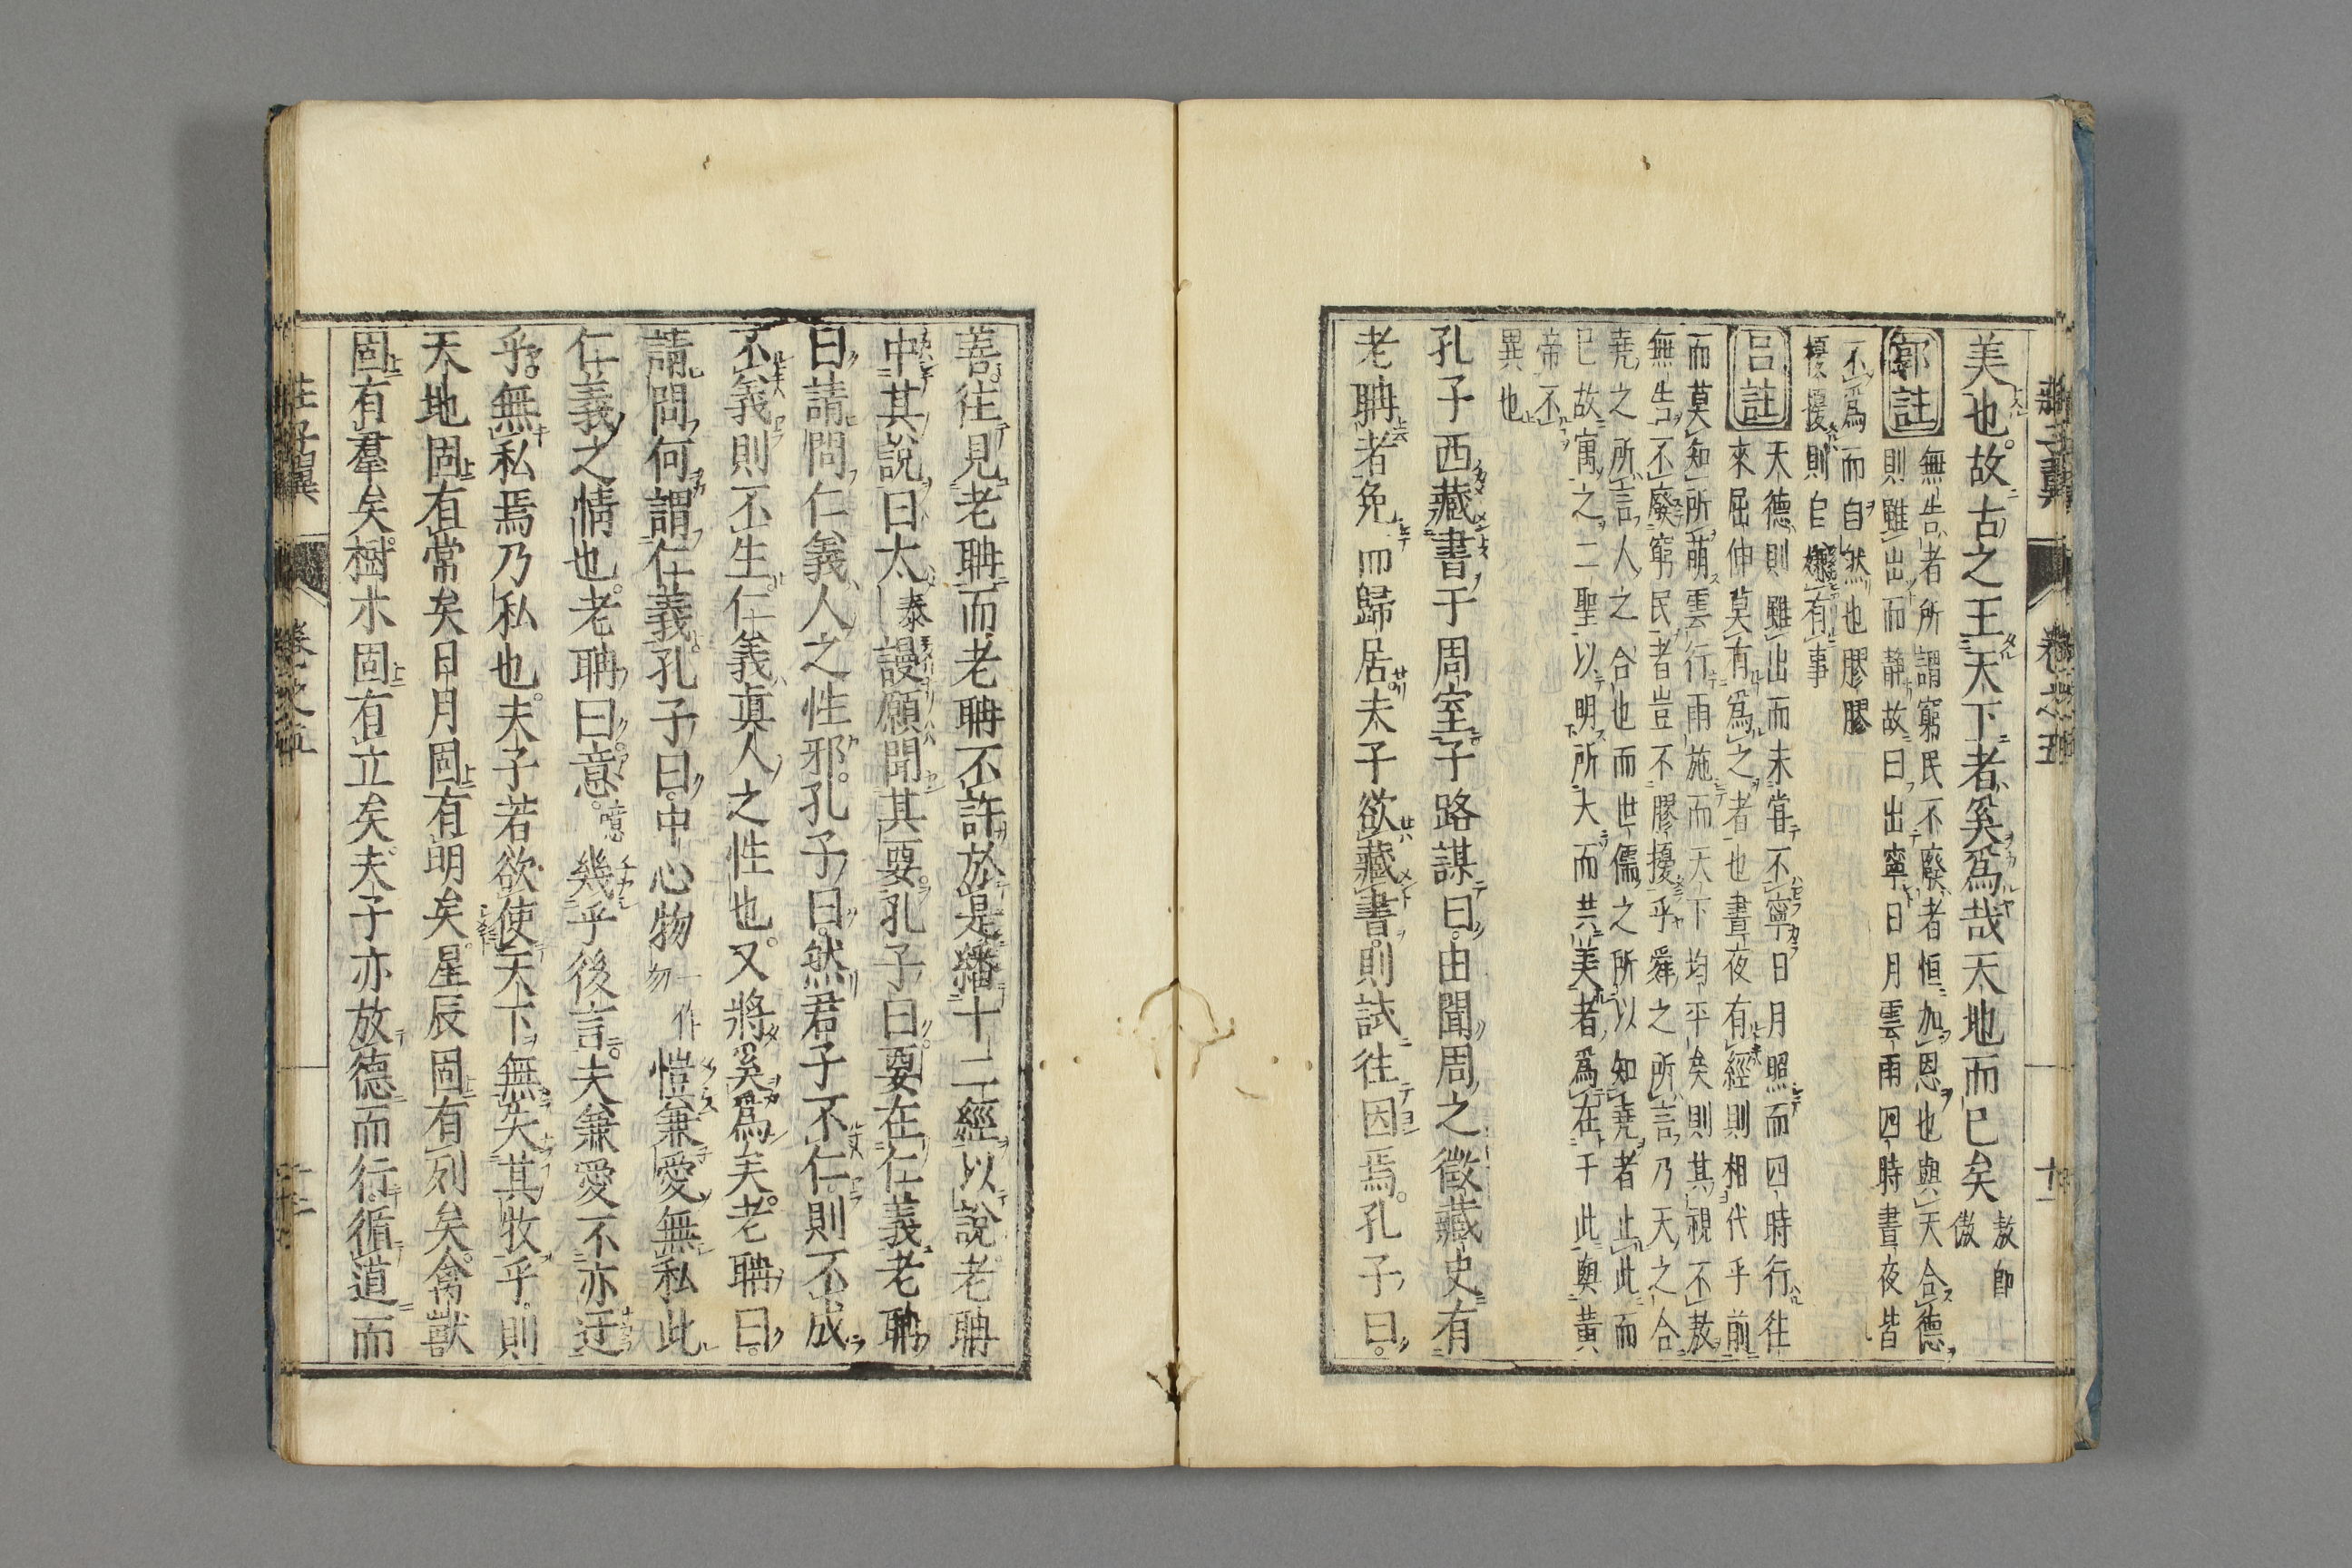 美也故古之王天下者奚爲哉天地而已矣敖即傲
郭註
無告者所謂窮民不廢者恒加恩也與天合德
則雖出而静故曰出寧日月雲雨四時晝夜皆
不爲而自然也膠膠
擾擾則自嫌有事
呂註
天德則雖出而未甞不寧日月照而四時行往
來屈伸莫有爲之者也晝夜有經則相代乎前
而莫知所萌雲行雨施而天下均平矣則其視不敖
無告不廢窮民者豈不膠擾乎舜之所言乃天之合
堯之所言人之合也而世儒之所以知堯者止此而
已故寓之二聖以明所大而共美者爲在于此與黄
帝不
異也
孔子西藏書于周室子路謀曰由聞周之徵藏史有
老聃者免而歸居夫子欲藏書則試往因焉孔子曰
善往見老聃而老聃不許於是繙十二經以說老聃
中其說曰太泰謾願聞其要孔子曰要在仁義老聃
曰請問仁義人之性邪孔子曰然君子不仁則不成
不義則不生仁義眞人之性也又將奚爲矣老聃曰
請問何謂仁義孔子曰中心物一作勿愷兼愛無私此
仁義之情也老聃曰意噫幾乎後言夫兼愛不亦迂
乎無私焉乃私也夫子若欲使天下無失其牧乎則
天地固有常矣日月固有明矣星辰固有列矣禽獸
固有羣矣樹木固有立矣夫子亦放德而行循道而
莊子翼 卷之五 十二